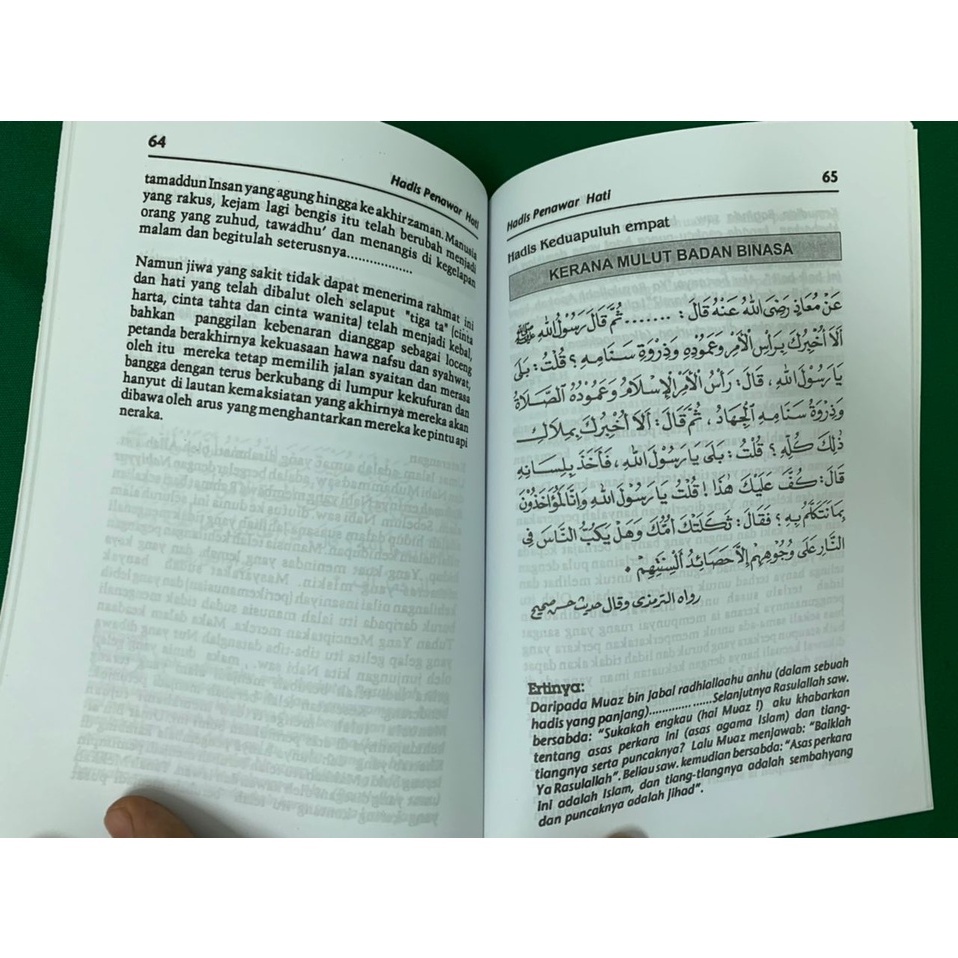 64
Hadis Penawar Hati
tamaddun Insan yang agung hingga ke akhir zaman. Manusia
yang rakus, kejam lagi bengis itu telah berubah menjadi
orang yang zuhud, tawadhu' dan menangis di kegelapan
malam dan begitulah seterusnya................
Namun jiwa yang sakit tidak dapat menerima rahmat ini
dan hati yang telah dibalut oleh selaput "tiga ta" (cinta
harta, cinta tahta dan cinta wanita) telah menjadi kebal,
bahkan panggilan kebenaran dianggap sebagai loceng
petanda berakhirnya kekuasaan hawa nafsu dan syahwat,
oleh itu mereka tetap memilih jalan syaitan dan merasa
bangga dengan terus berkubang di lumpur kekufuran dan
hanyut di lautan kemaksiatan yang akhirnya mereka akan
dibawa oleh arus yang menghantarkan mereka ke pintu api
neraka.
65
Hadis Penawar Hati
Hadis Keduapuluh empat
KERANA MULUT BADAN BINASA
عَنْ مُعَاذٍ رَضِيَ اللهُ عَنْهُ قَالَ : ....... ثُمَّ قَالَ رَسُوْلُ اللهِ ﷺ
أَلَا أُخْبِرُكَ بِرَأْسِ الْأَمْرِ وَعَمُوْدِهِ وَذِرْوَةِ سَنَامِهِ ؟ قُلْتُ : بَلَى
يَا رَسُوْلَ اللهِ ، قَالَ : رَأْسُ الْأَمْرِ الْإِسْلَامُ وَعَمُوْدُهُ الصَّلَاةُ
وَذِرْوَةُ سَنَامِهِ الْجِهَادُ ، ثُمَّ قَالَ : أَلَا أُخْبِرُكَ بِمِلَاكِ
ذٰلِكَ كُلِّهِ ؟ قُلْتُ : بَلَى يَا رَسُوْلَ اللهِ ، فَأَخَذَ بِلِسَانِهِ
قَالَ : كُفَّ عَلَيْكَ هٰذَا ! قُلْتُ يَا رَسُوْلَ اللهِ وَإِنَّا لَمُؤَاخَذُوْنَ
بِمَا نَتَكَلَّمُ بِهِ ؟ فَقَالَ : ثَكِلَتْكَ أُمُّكَ وَهَلْ يَكُبُّ النَّاسَ فِي
النَّارِ عَلَى وُجُوْهِهِمْ إِلَّا حَصَائِدُ أَلْسِنَتِهِمْ .
رواه الترمذى وقال حديث حسن صحيح
Ertinya:
Daripada Muaz bin Jabal radhiallaahu anhu (dalam sebuah
hadis yang panjang)..................Selanjutnya Rasulallah saw.
bersabda: "Sukakah engkau (hai Muaz !) aku khabarkan
tentang asas perkara ini (asas agama Islam) dan tiang-
tiangnya serta puncaknya? Lalu Muaz menjawab: "Baiklah
Ya Rasulallah". Beliau saw. kemudian bersabda: "Asas perkara
ini adalah Islam, dan tiang-tiangnya adalah sembahyang
dan puncaknya adalah Jihad".